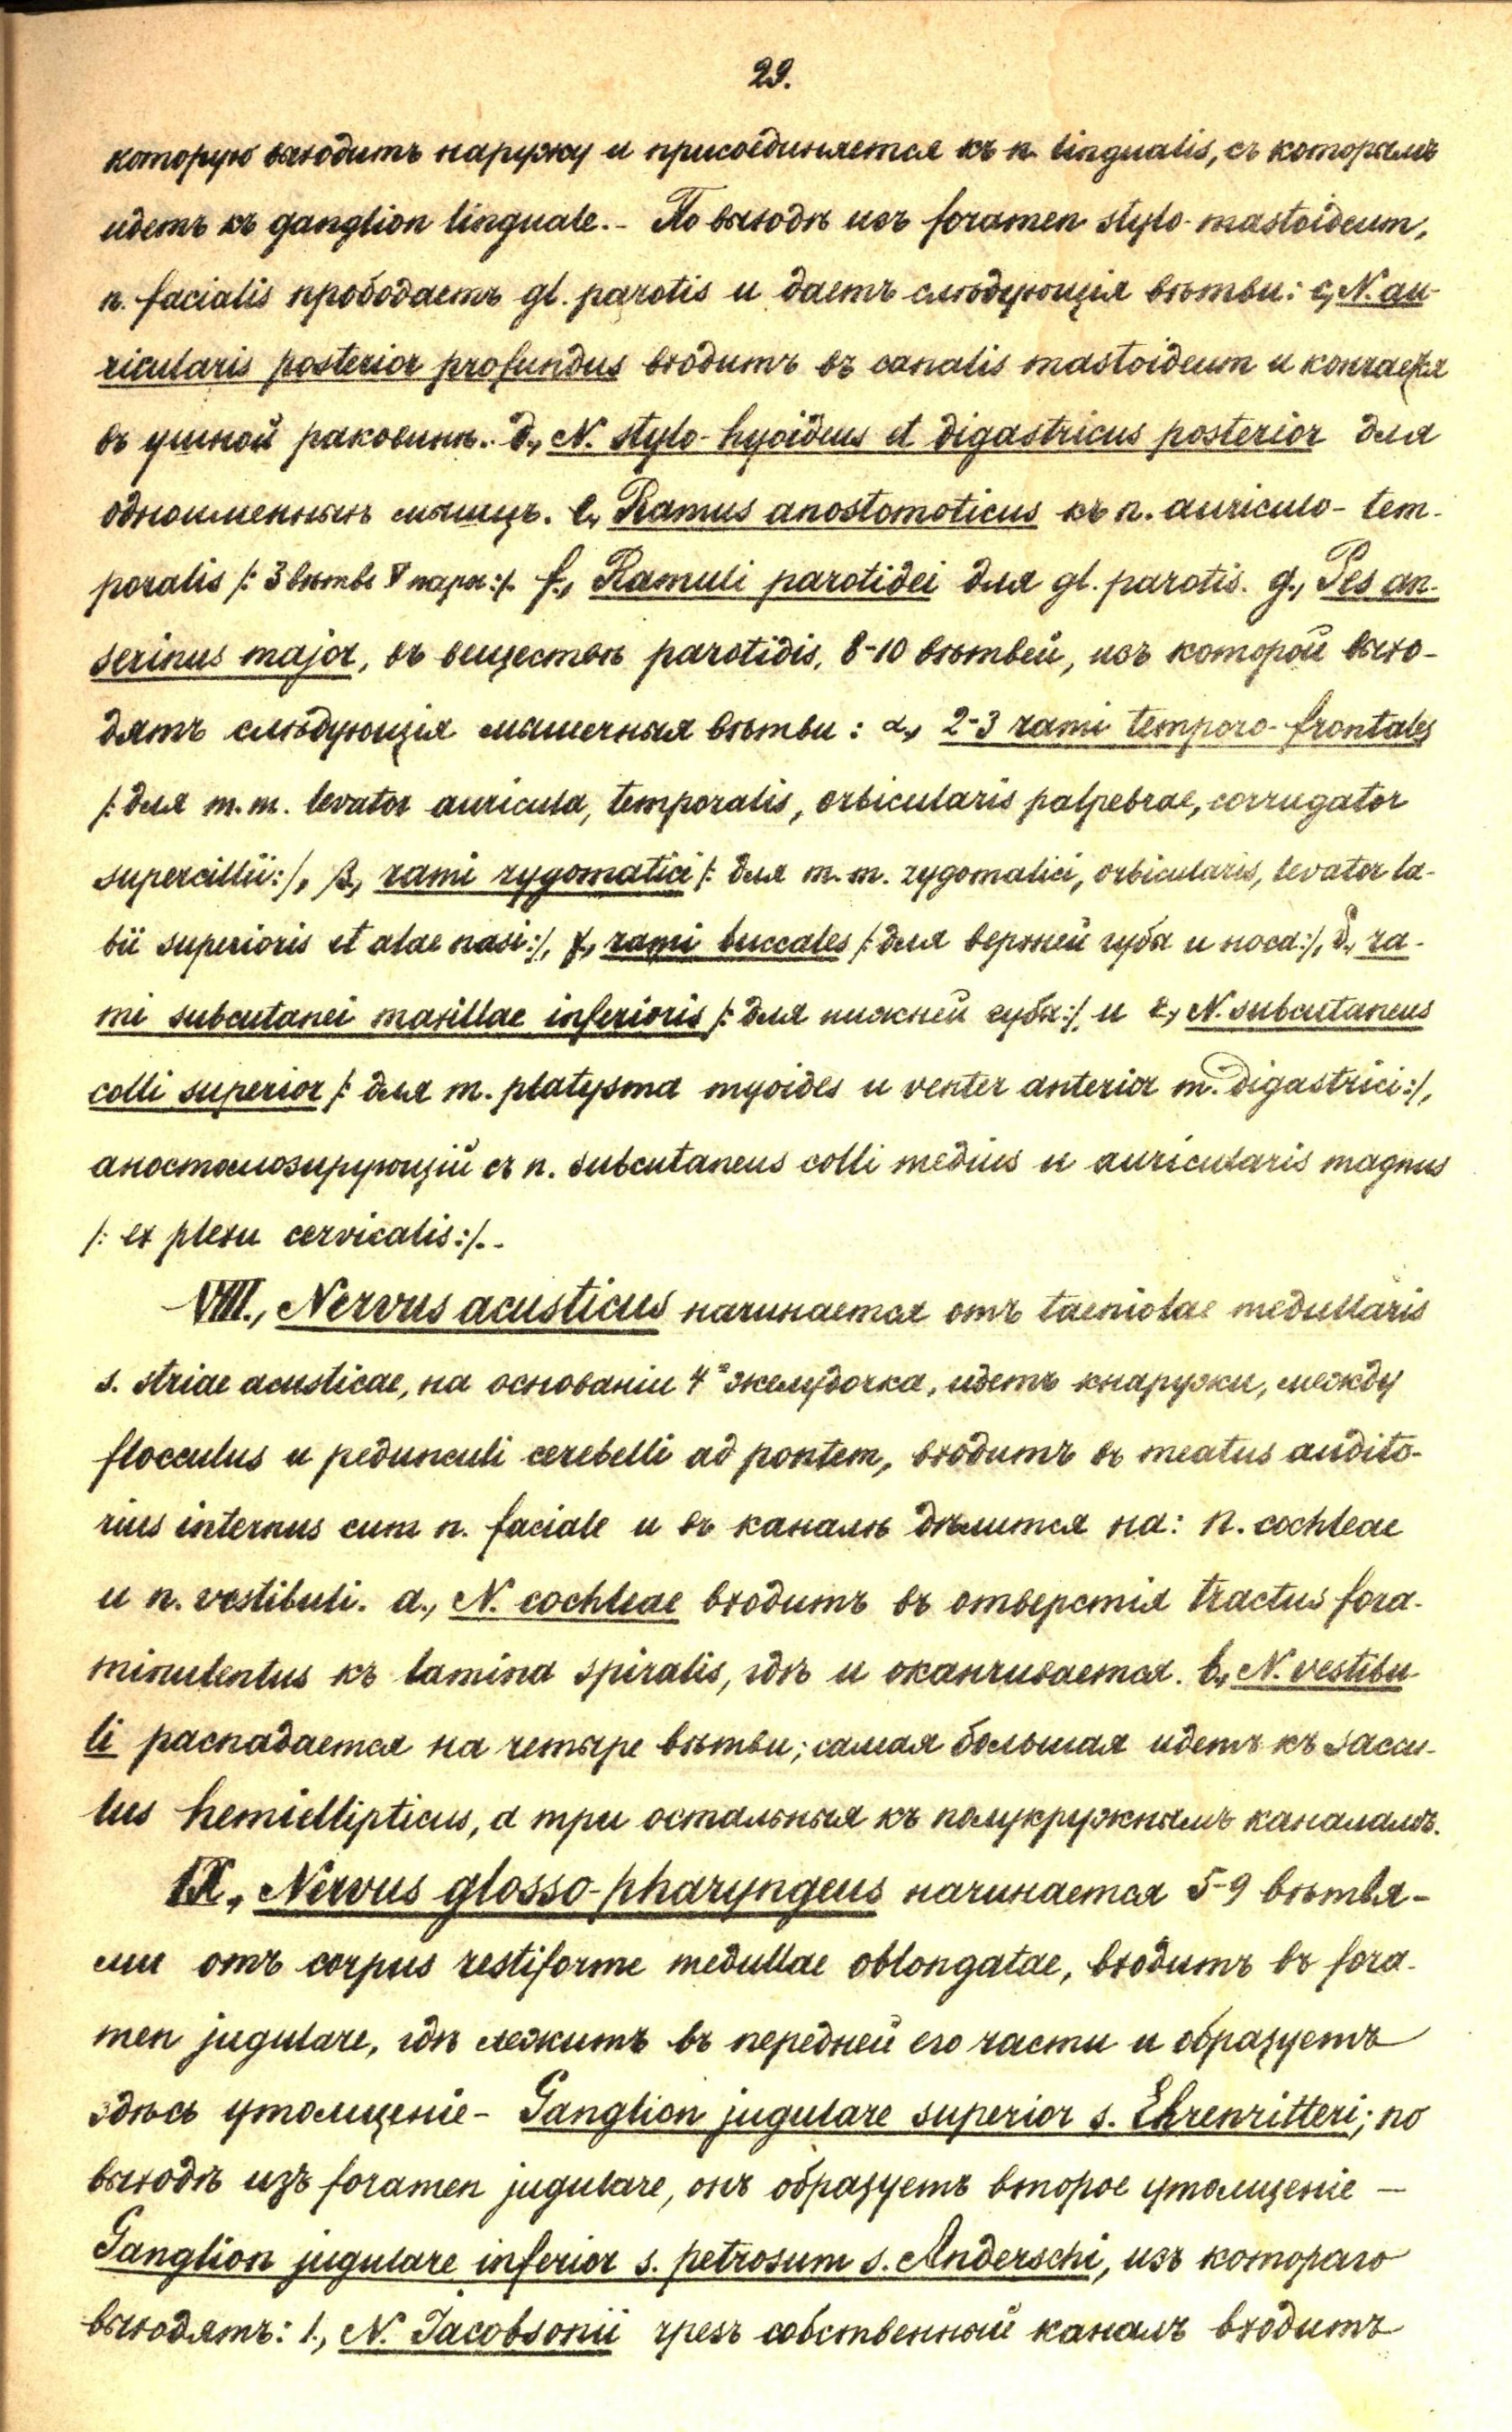 29.
которую выходитъ наружу и присоединяется къ n. lingualis, съ которымъ
идетъ къ ganglion linguale.- По выходѣ изъ foramen stylo-mastoideum,
n. facialis прободаетъ gl. parotis и даетъ слѣдующія вѣтви: c, N. au-
ricularis posterior profundus входитъ въ canalis mastoideum и кончается
въ ушной раковинѣ. d., N. stylo-hyoideus et digastricus posterior для
одноименныхъ мышцъ. e, Ramus anostomoticus къ n. auriculo-tem-
poralis /: 3 вѣтвь V пары:/. f., Ramuli parotidei для gl. parotis. g., Pes an-
serinus major, въ веществѣ parotidis, 8-10 вѣтвей, изъ которой выхо-
дятъ слѣдующія мышечныя вѣтви: α., 2-3 rami temporo-frontales
/: для m.m. levator auricula, temporalis, orbicularis palpebrae, corrugator
supercillii:/, β, rami zygomatici /: для m.m. zygomatici, orbicularis, levator la-
bii superioris et alae nasi:/, γ, rami buccales /: для верхней губы и носа:/, δ., ra-
mi subcutanei maxillae inferioris /: для нижней губы:/ и ε, N. subcutaneus
colli superior /: для m. platysma myoides и venter anterior m. digastrici:/,
аностомозирующій съ n. subcutaneus colli medius и auricularis magnus
/: ex plexu cervicalis:/.-
VIII., Nervus acusticus начинается отъ taeniolae medullaris
s. striae acusticae, на основаніи 4го желудочка, идетъ кнаружи, между
flocculus и pedunculi cerebelli ad pontem, входитъ въ meatus audito-
rius internus cum n. faciale и въ каналѣ дѣлится на: n. cochleae
и n. vestibuli. a., N. cochleae входитъ въ отверстія tractus fora-
minulentus къ lamina spiralis, гдѣ и оканчивается. b., N. vestibu
li распадается на четыре вѣтви; самая большая идетъ къ saccu-
lus hemiellipticus, а три остальныя къ полукружнымъ каналамъ.
IX., Nervus glosso-pharyngeus начинается 5-9 вѣтвя-
ми отъ corpus restiforme medullae oblongatae, входитъ въ fora-
men jugulare, гдѣ лежитъ въ передней его части и образуетъ
здѣсь утолщеніе- Ganglion jugulare superior s. Ehrenritteri; по
выходѣ изъ foramen jugulare, онъ образуетъ второе утолщеніе —
Ganglion jugulare inferior s. petrosum s. Anderschi, изъ котораго
выходятъ: 1., N. Jacobsonii чрезъ собственный каналъ входитъ